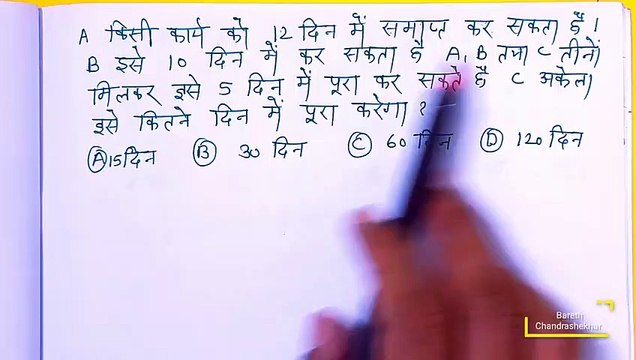 A किसी कार्य को 12 दिन में समाप्त कर सकता है ।
B इसे 10 दिन में कर सकता है A, B तथा C तीनों
मिलकर इसे 5 दिन में पूरा कर सकते है C अकेला
इसे कितने दिन में पूरा करेगा ?
(A) 15 दिन (B) 30 दिन (C) 60 दिन (D) 120 दिन
Bareth
Chandrashekhar